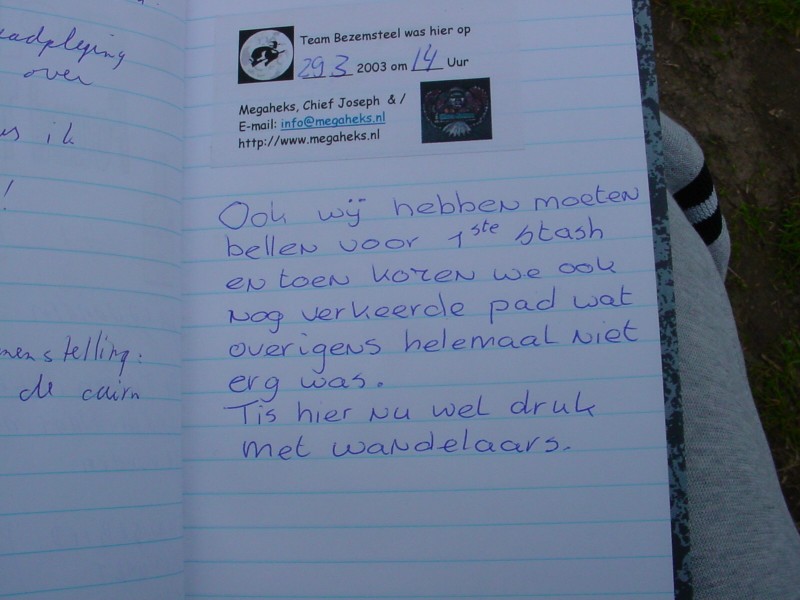 over
ik
!
menstelling:
de cairn
Team Bezemsteel was hier op
29 3 2003 om 14 Uur
Megaheks, Chief Joseph & /
E-mail: info@megaheks.nl
http://www.megaheks.nl
Ook wij hebben moeten
bellen voor 1ste stash
en toen kozen we ook
nog verkeerde pad wat
overigens helemaal niet
erg was.
Tis hier nu wel druk
met wandelaars.